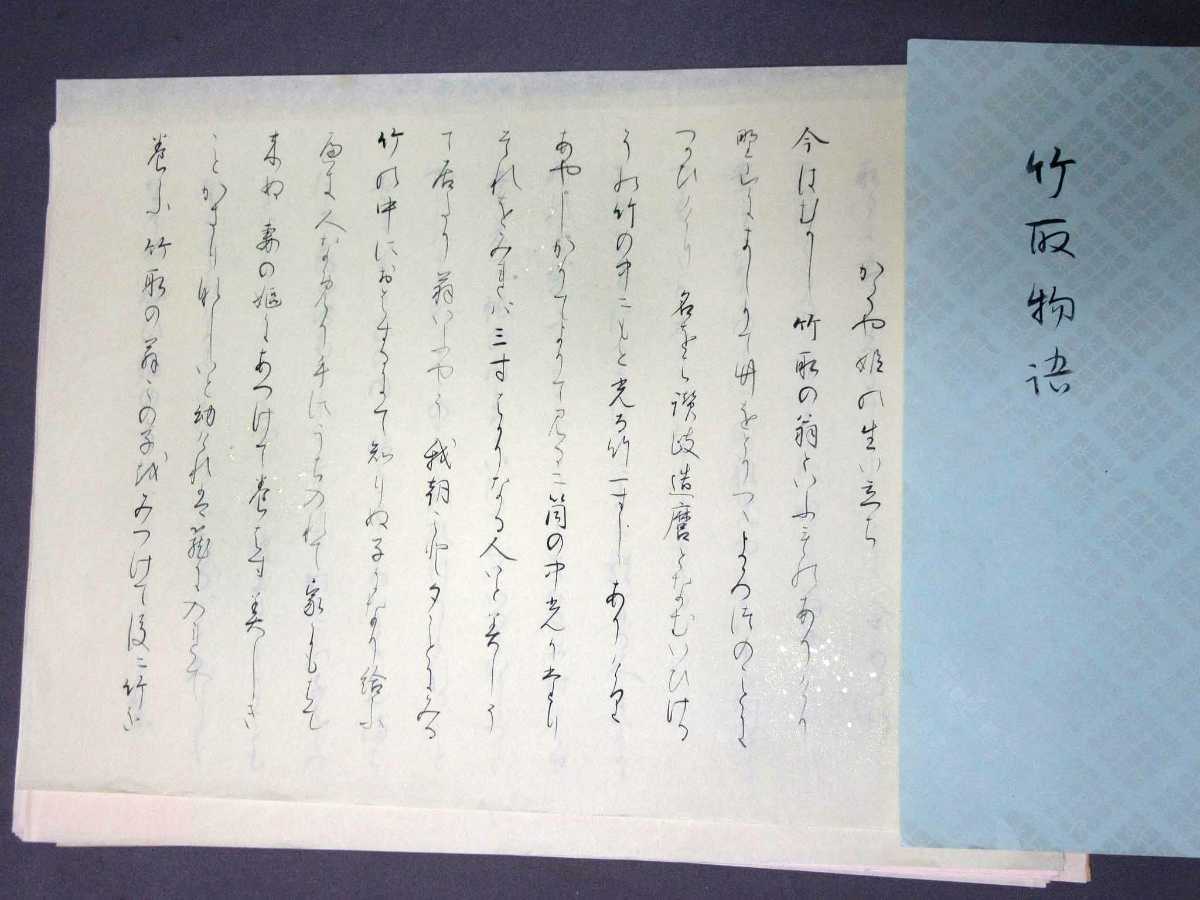 竹取物語
かくや姫の生い立ち
今はむかし竹取の翁といふものありけり
野山にましりて竹をとりつゝよろつのことに
つかひけり名をは讃岐造麿となむいひける
その竹の中にもと光る竹一すしありけり
あやしかりてよりて見るに筒の中光りたり
それをみれは三寸はかりなる人いと美しう
て居たり翁いふやう我朝こと夕ことにみる
竹の中におはするにて知りぬ子になり給ふ
へき人なめり手にうち入れて家にもちて
来ぬ妻の嫗にあつけて養はす美しき
ことかきりなしいと幼けれは籠に入れて
養ふ竹取の翁この子をみつけて後に竹を